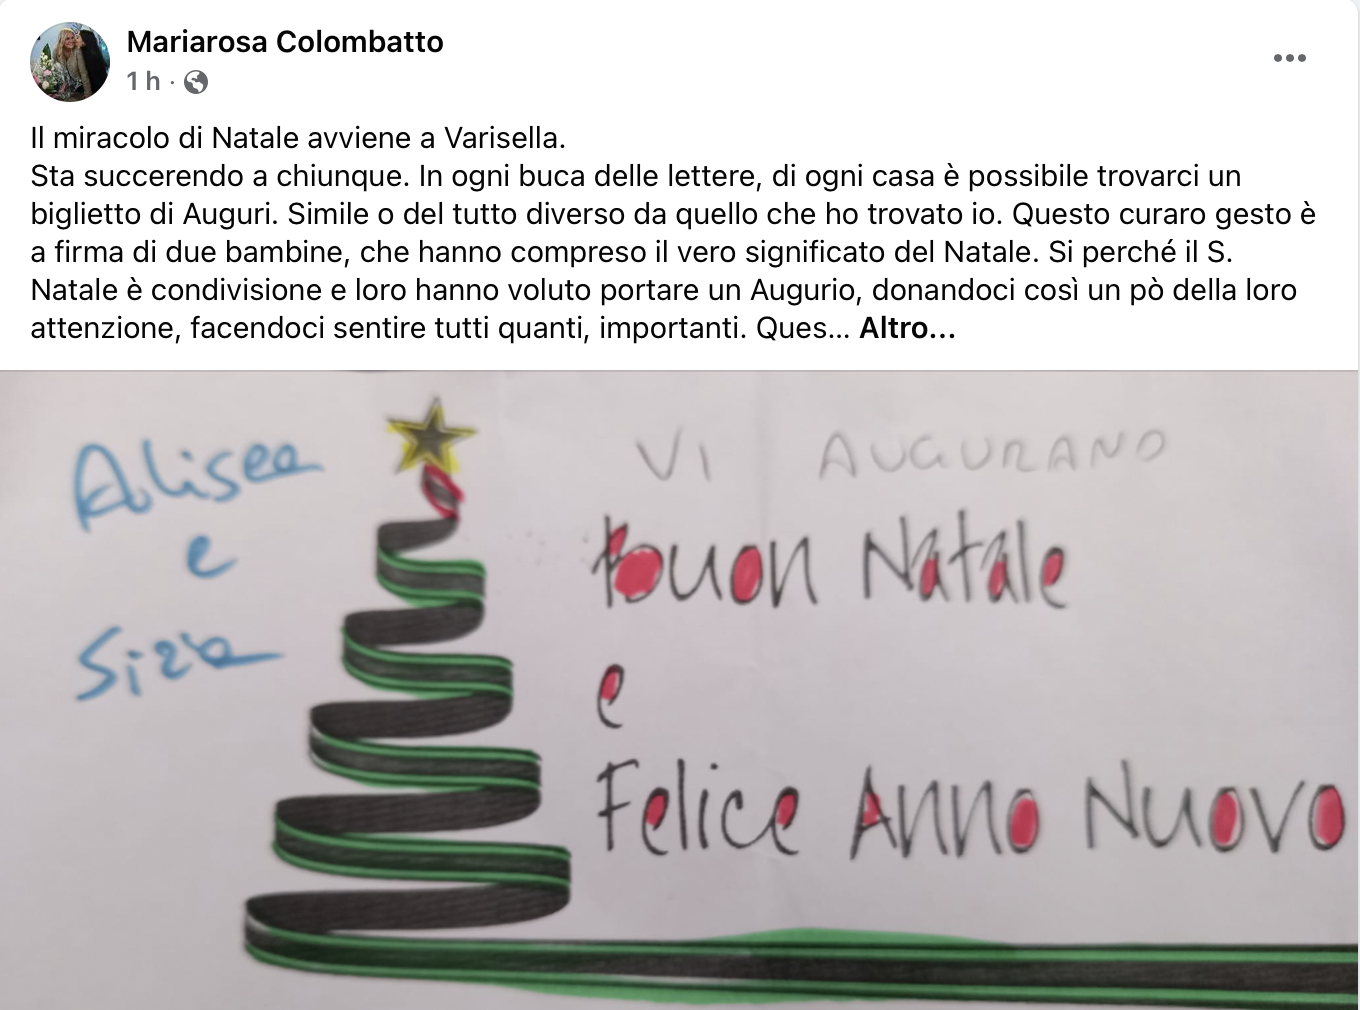 Mariarosa Colombatto
1 h ·
Il miracolo di Natale avviene a Varisella.
Sta succerendo a chiunque. In ogni buca delle lettere, di ogni casa è possibile trovarci un
biglietto di Auguri. Simile o del tutto diverso da quello che ho trovato io. Questo curaro gesto è
a firma di due bambine, che hanno compreso il vero significato del Natale. Si perché il S.
Natale è condivisione e loro hanno voluto portare un Augurio, donandoci così un pò della loro
attenzione, facendoci sentire tutti quanti, importanti. Ques... Altro...
Alisea
e
VI AUGURANO
Buon Natale
e
Felice Anno Nuovo